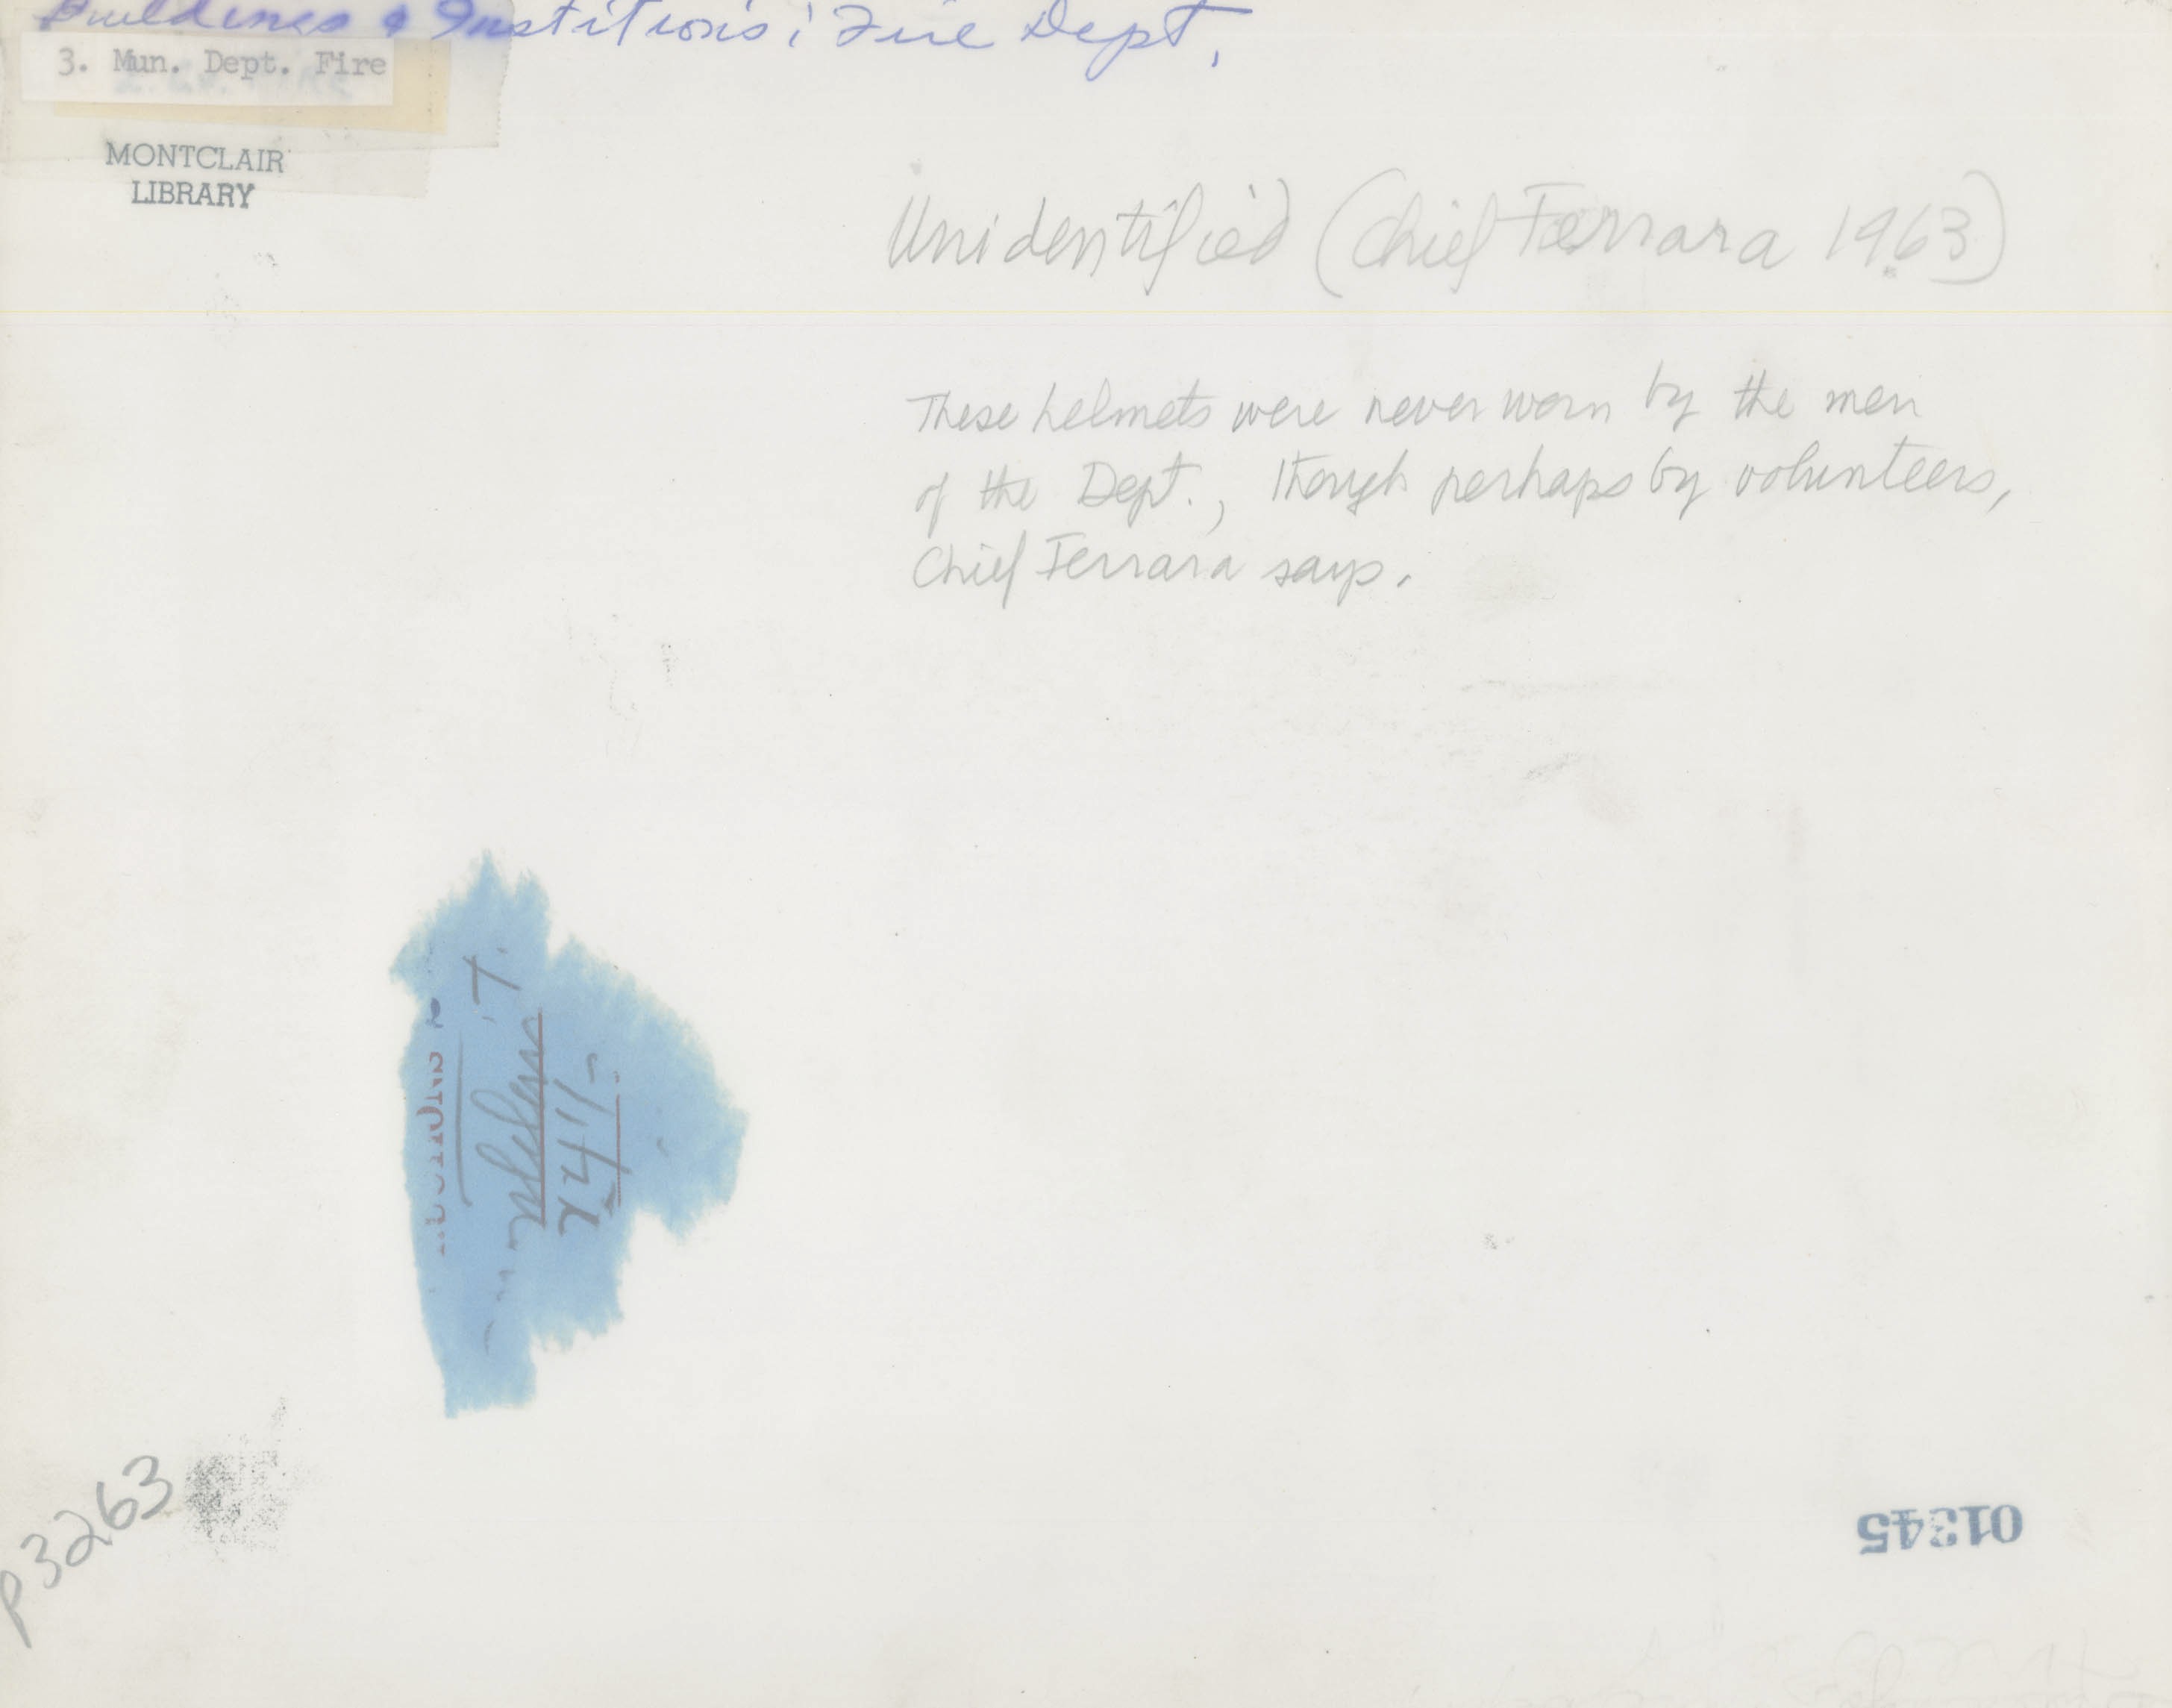 Buildings & Institutions; Fire Dept.
3. Mun. Dept. Fire
MONTCLAIR
LIBRARY
Unidentified (Chief Ferrara 1963)
These helmets were never worn by the men
of the Dept., though perhaps by volunteers,
Chief Ferrara says.
P3263
01345